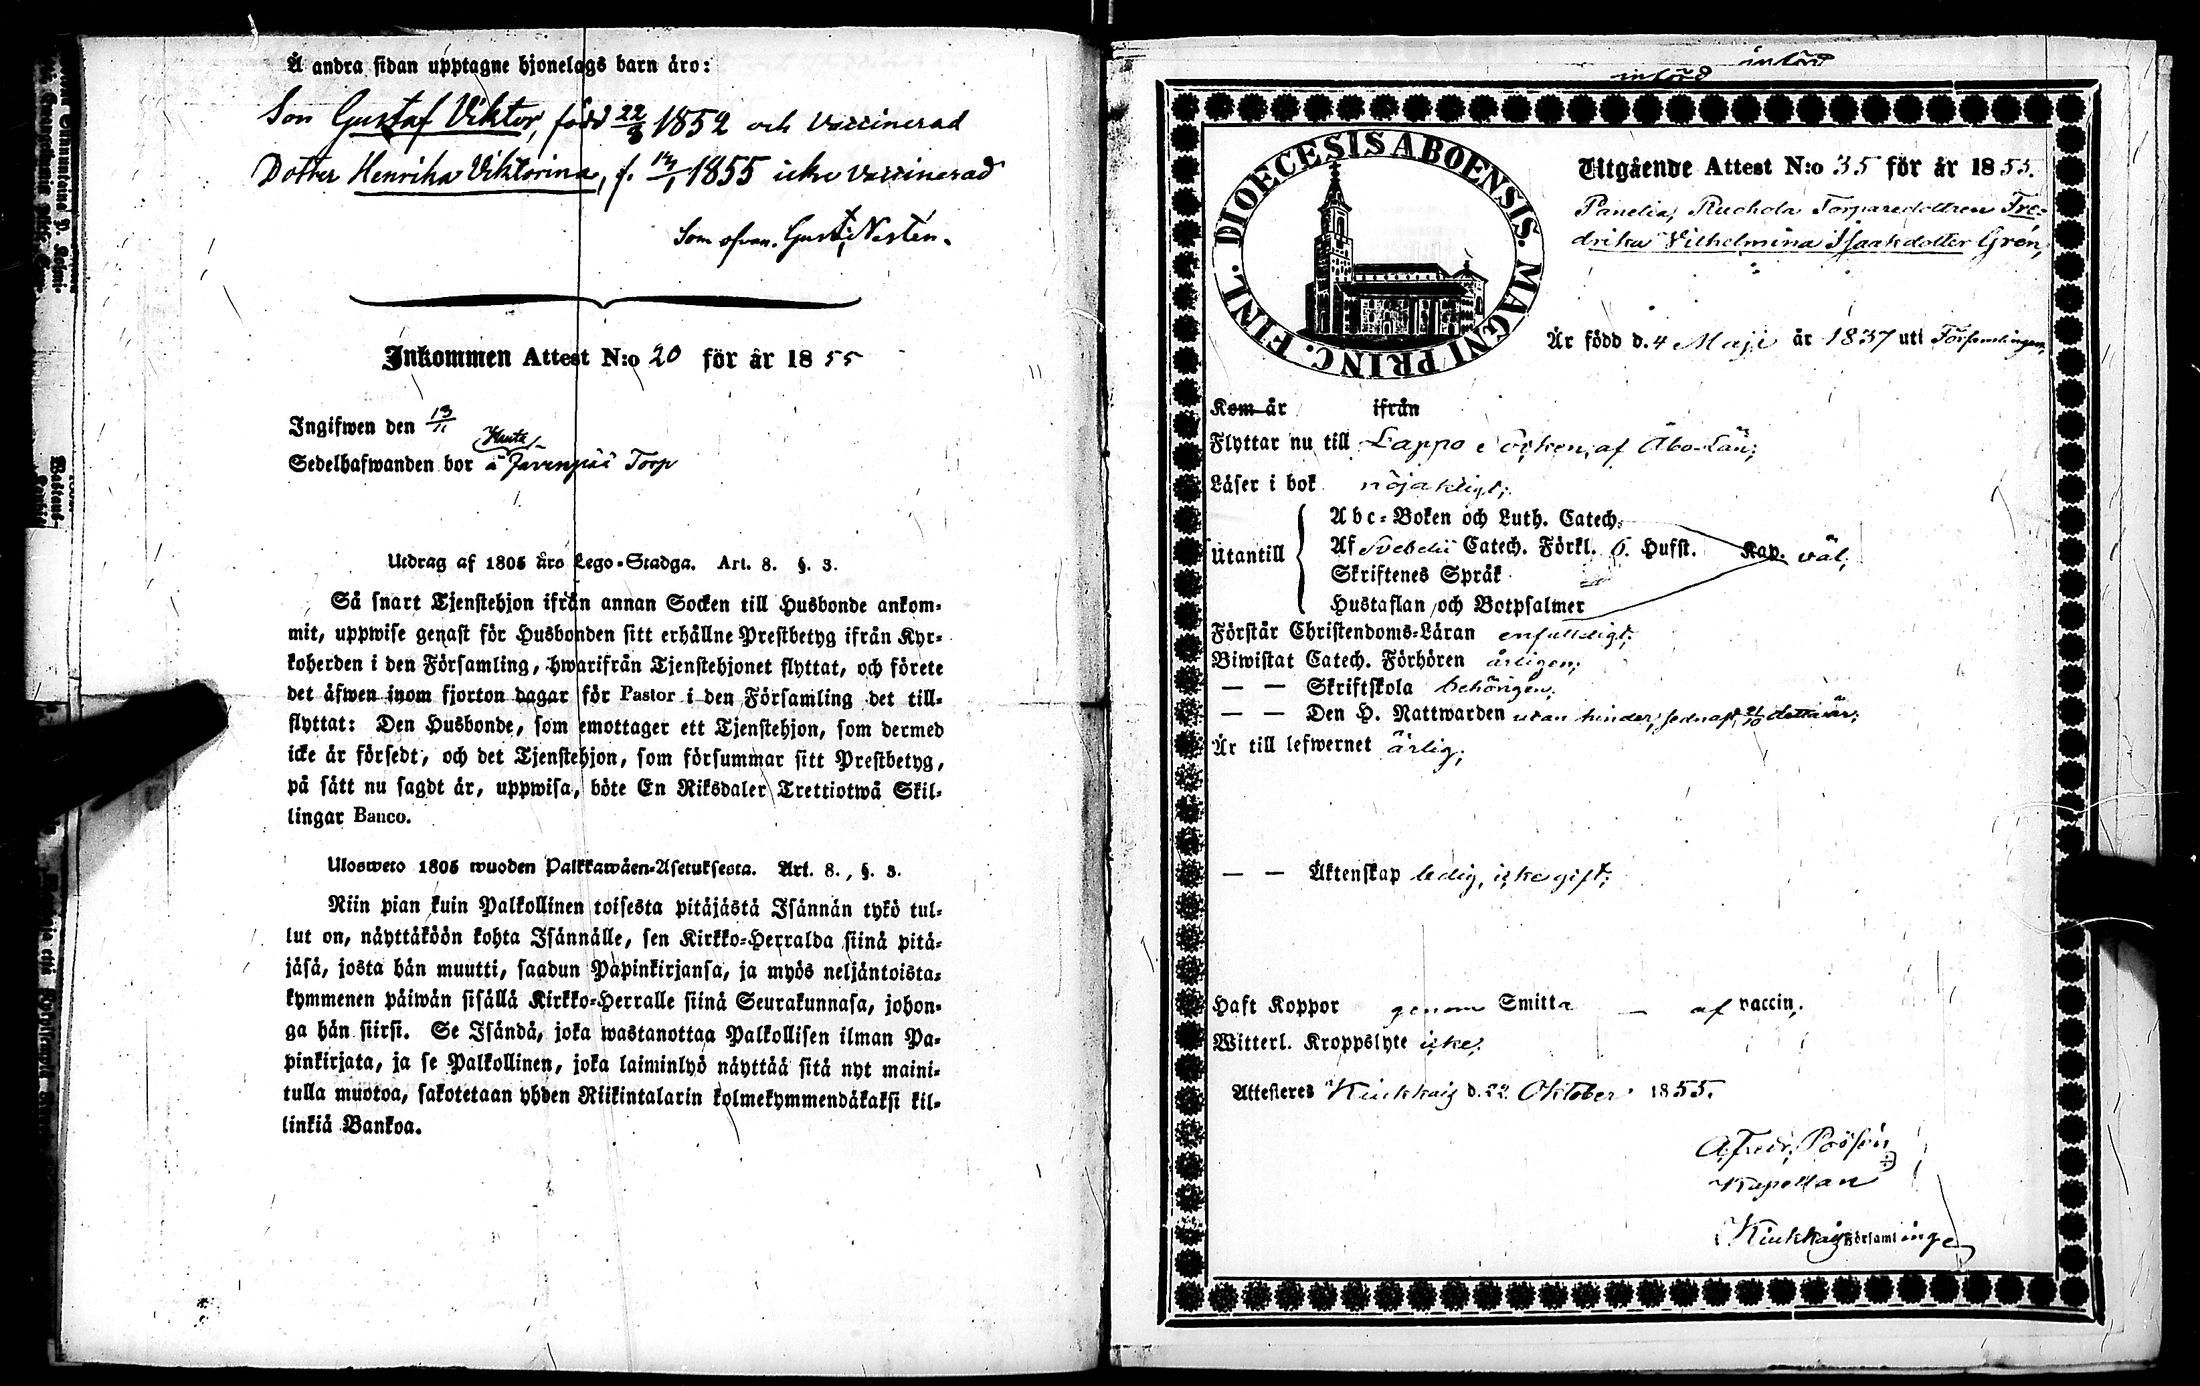 Å andra sidan upptagne hjonelags barn äro:
Son Gustaf Viktor, född 22/3 1852 och vaccinerad
Dotter Henrika Viktorina, f. 1855 icke vaccinerad
Som ofvan. Gust. Nestén.
Inkommen Attest N:o 20 för år 1855
Ingifwen den 13/11
Sedelhafwanden bor å Järvenpää Torp
Utdrag af 1805 års Lego-Stadga. Art. 8. §. 3.
Så snart Tjenstehjon ifrån annan Socken till Husbonde ankom-
mit, uppwise genast för Husbonden sitt erhållne Prestbetyg ifrån Kyr-
koherden i den Församling, hwarifrån Tjenstehjonet flyttat, och förete
det äfwen inom fjorton dagar för Pastor i den Församling det till-
flyttat: Den Husbonde, som emottager ett Tjenstehjon, som dermed
icke är försedt, och det Tjenstehjon, som försummar sitt Prestbetyg,
på sätt nu sagdt är, uppwisa, böte En Riksdaler Trettiotwå Skil-
lingar Banco.
Ulosweto 1805 wuoden Palkkawäen-Asetuksesta. Art. 8., §. 3.
Niin pian kuin Palkollinen toisesta pitäjästä Isännän tykö tul-
lut on, näyttäköön kohta Isännälle, sen Kirkko-Herralda siinä pitä-
jäsä, josta hän muutti, saadun Papinkirjansa, ja myös neljäntoista-
kymmenen päiwän sisällä Kirkko-Herralle siinä Seurakunnasa, johon-
ga hän siirsi. Se Isändä, joka wastanottaa Palkollisen ilman Pa-
pinkirjata, ja se Palkollinen, joka laiminlyö näyttää sitä nyt maini-
tulla muotoa, sakotetaan yhden Riikintalarin kolmekymmendäkaksi kil-
linkiä Bankoa.
införd
införd
DIOECESIS ABOENSIS. MAGNI PRINC. FINL.
Utgående Attest N:o 35 för år 1855.
Panelia, Ruohola Torparedottren Fre-
drika Vilhelmina Isaaksdotter Grén,
Är född d. 4 Maji år 1837 uti Församlingen,
Kom år ifrån
Flyttar nu till Lappo Socken, af Åbo Län;
Läser i bok nöjaktligt;
Utantill
Abc-Boken och Luth. Catech.
Af Svebelii Catech. Förkl. 6. Hufst. Kap. väl;
Skriftenes Språk
Hustaflan och Botpsalmer
Förstår Christendoms-Läran enfaldigt;
Biwistat Catech. Förhören årligen;
— — Skriftskola behörigen;
— — Den H. Nattwarden utan hinder, sednast 21/10 detta år;
Är till lefwernet ärlig;
— — Äktenskap ledig, icke gift;
Haft Koppor genom Smitta — af vaccin;
Witterl. Kroppslyte icke;
Attesteres Kiukkais d. 22 Oktober 1855.
Kapellan
Kiukkais Församlingen